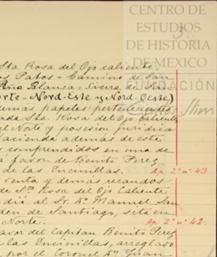 CENTRO DE
ESTUDIOS
DE HISTORIA
DE MEXICO
Sta Rosa del Ojo caliente
os Patos - Camino de San
Peña Blanca - Sierra de
orte - Nord-Este y Nord-Oeste)
demas papeles pertenecientes
ada Sta Rosa del Ojo Caliente
el Norte y posesion juridica
Hacienda ademas de este
comprendidos en una de
a favor de Benito Perez
de las Encinillas. Ap. 2º nº 43
venta y demas recaudos
de Sta Rosa del Ojo Caliente
dió al Sr. Dn Manuel San
den de Santiago, sita en
Norte. Ap. 2º nº 42.
favor del Capitan Benito Perez
las Encinillas, arreglado
por el Coronel Dn Juan